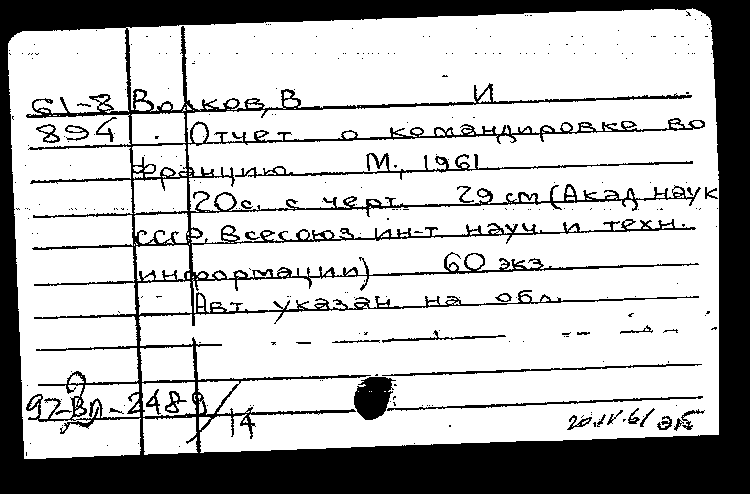 61-8 Волков, В И
894 Отчет о командировке во
Францию. М., 1961
20с. с черт. 29 см (Акад. наук
СССР. Всесоюз. ин-т науч. и техн.
информации) 60 экз.
Авт. указан на обл.
92-ВЛ-2489/14
20.IV.61